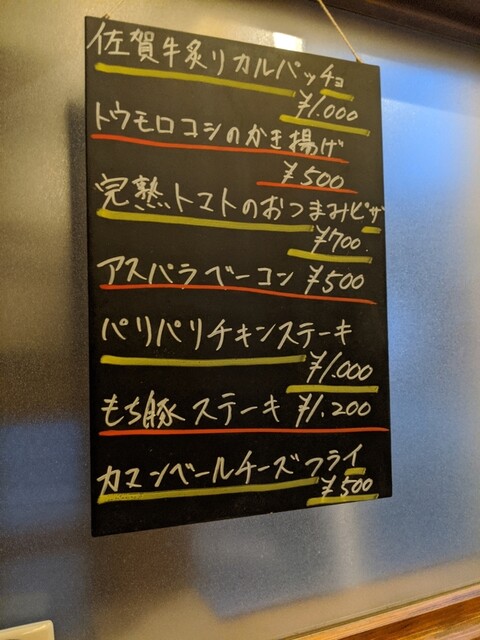 佐賀牛炙りカルパッチョ
¥1.000
トウモロコシのかき揚げ
¥500
完熟トマトのおつまみピザ
¥700.
アスパラベーコン ¥500
パリパリチキンステーキ
¥1.000
もち豚ステーキ ¥1.200
カマンベールチーズフライ
¥500